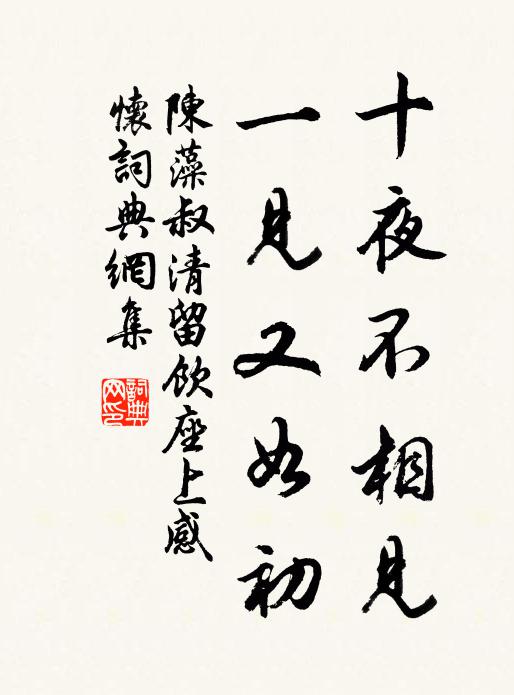 十夜不相見
一見又如初
陳藻叔清留飲座上感
懷詞典網集
詞典
网印